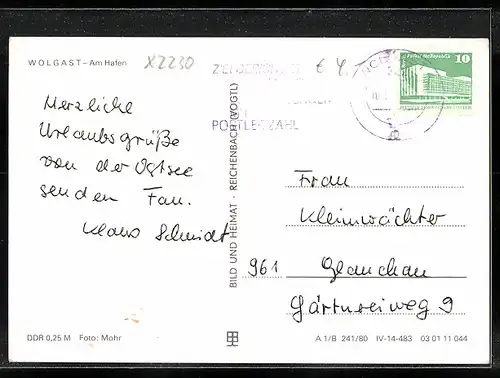 WOLGAST – Am Hafen
X2230
€ 4,-
POSTLEITZAHL
10
Herzliche
Urlaubsgrüße
von der Ostsee
senden Fam.
Klaus Schmidt
BILD UND HEIMAT · REICHENBACH (VOGTL)
Frau
Kleinwächter
961 Glauchau
Gärtnereiweg 9
DDR 0,25 M Foto: Mohr
A 1/B 241/80 IV-14-483 03 01 11 044